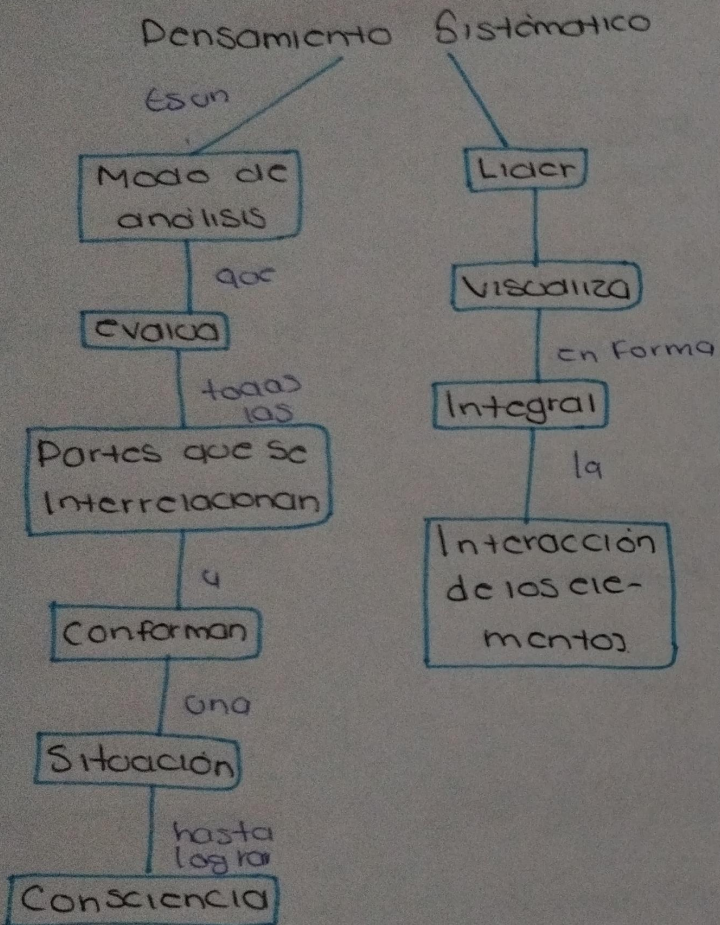 Pensamiento Sistématico
Es un
Modo de
análisis
que
evalua
todas
las
Partes que se
Interrelacionan
y
Conforman
una
Situación
hasta
lograr
Consciencia
Lider
Visualiza
en Forma
Integral
la
Interacción
de los ele-
mentos